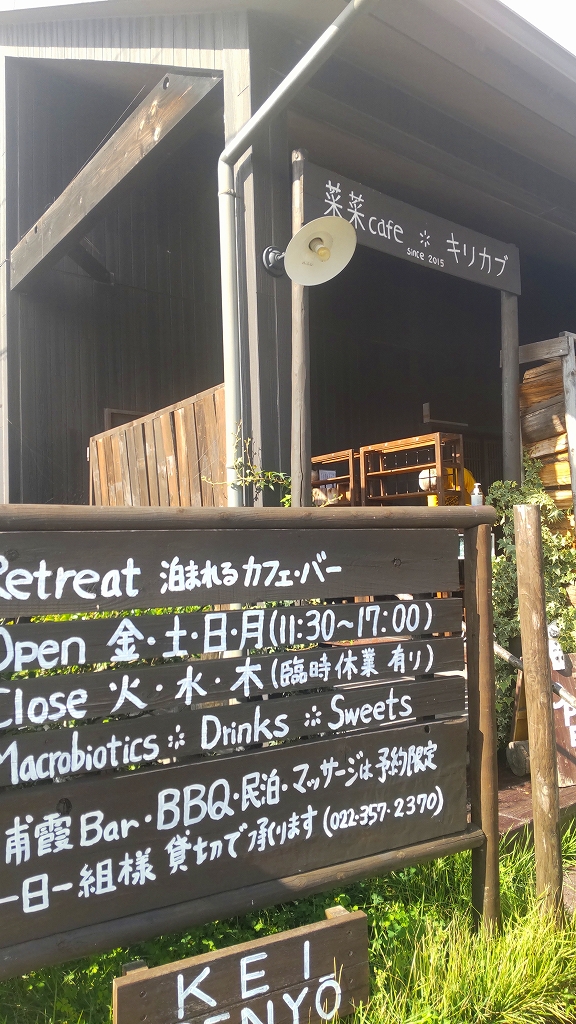 菜菜cafe * キリカブ
since 2015
Retreat 泊まれるカフェ・バー
Open 金・土・日・月(11:30~17:00)
Close 火・水・木(臨時休業 有り)
Macrobiotics * Drinks * Sweets
浦霞Bar・BBQ・民泊・マッサージは予約限定
一日一組様 貸切で承ります(022-357-2370)
KEI